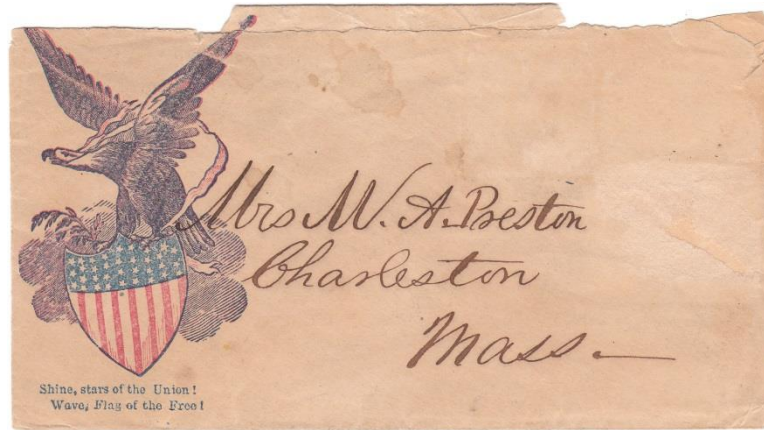 Mrs M. A. Preston
Charleston
Mass.
Shine, stars of the Union!
Wave, Flag of the Free!